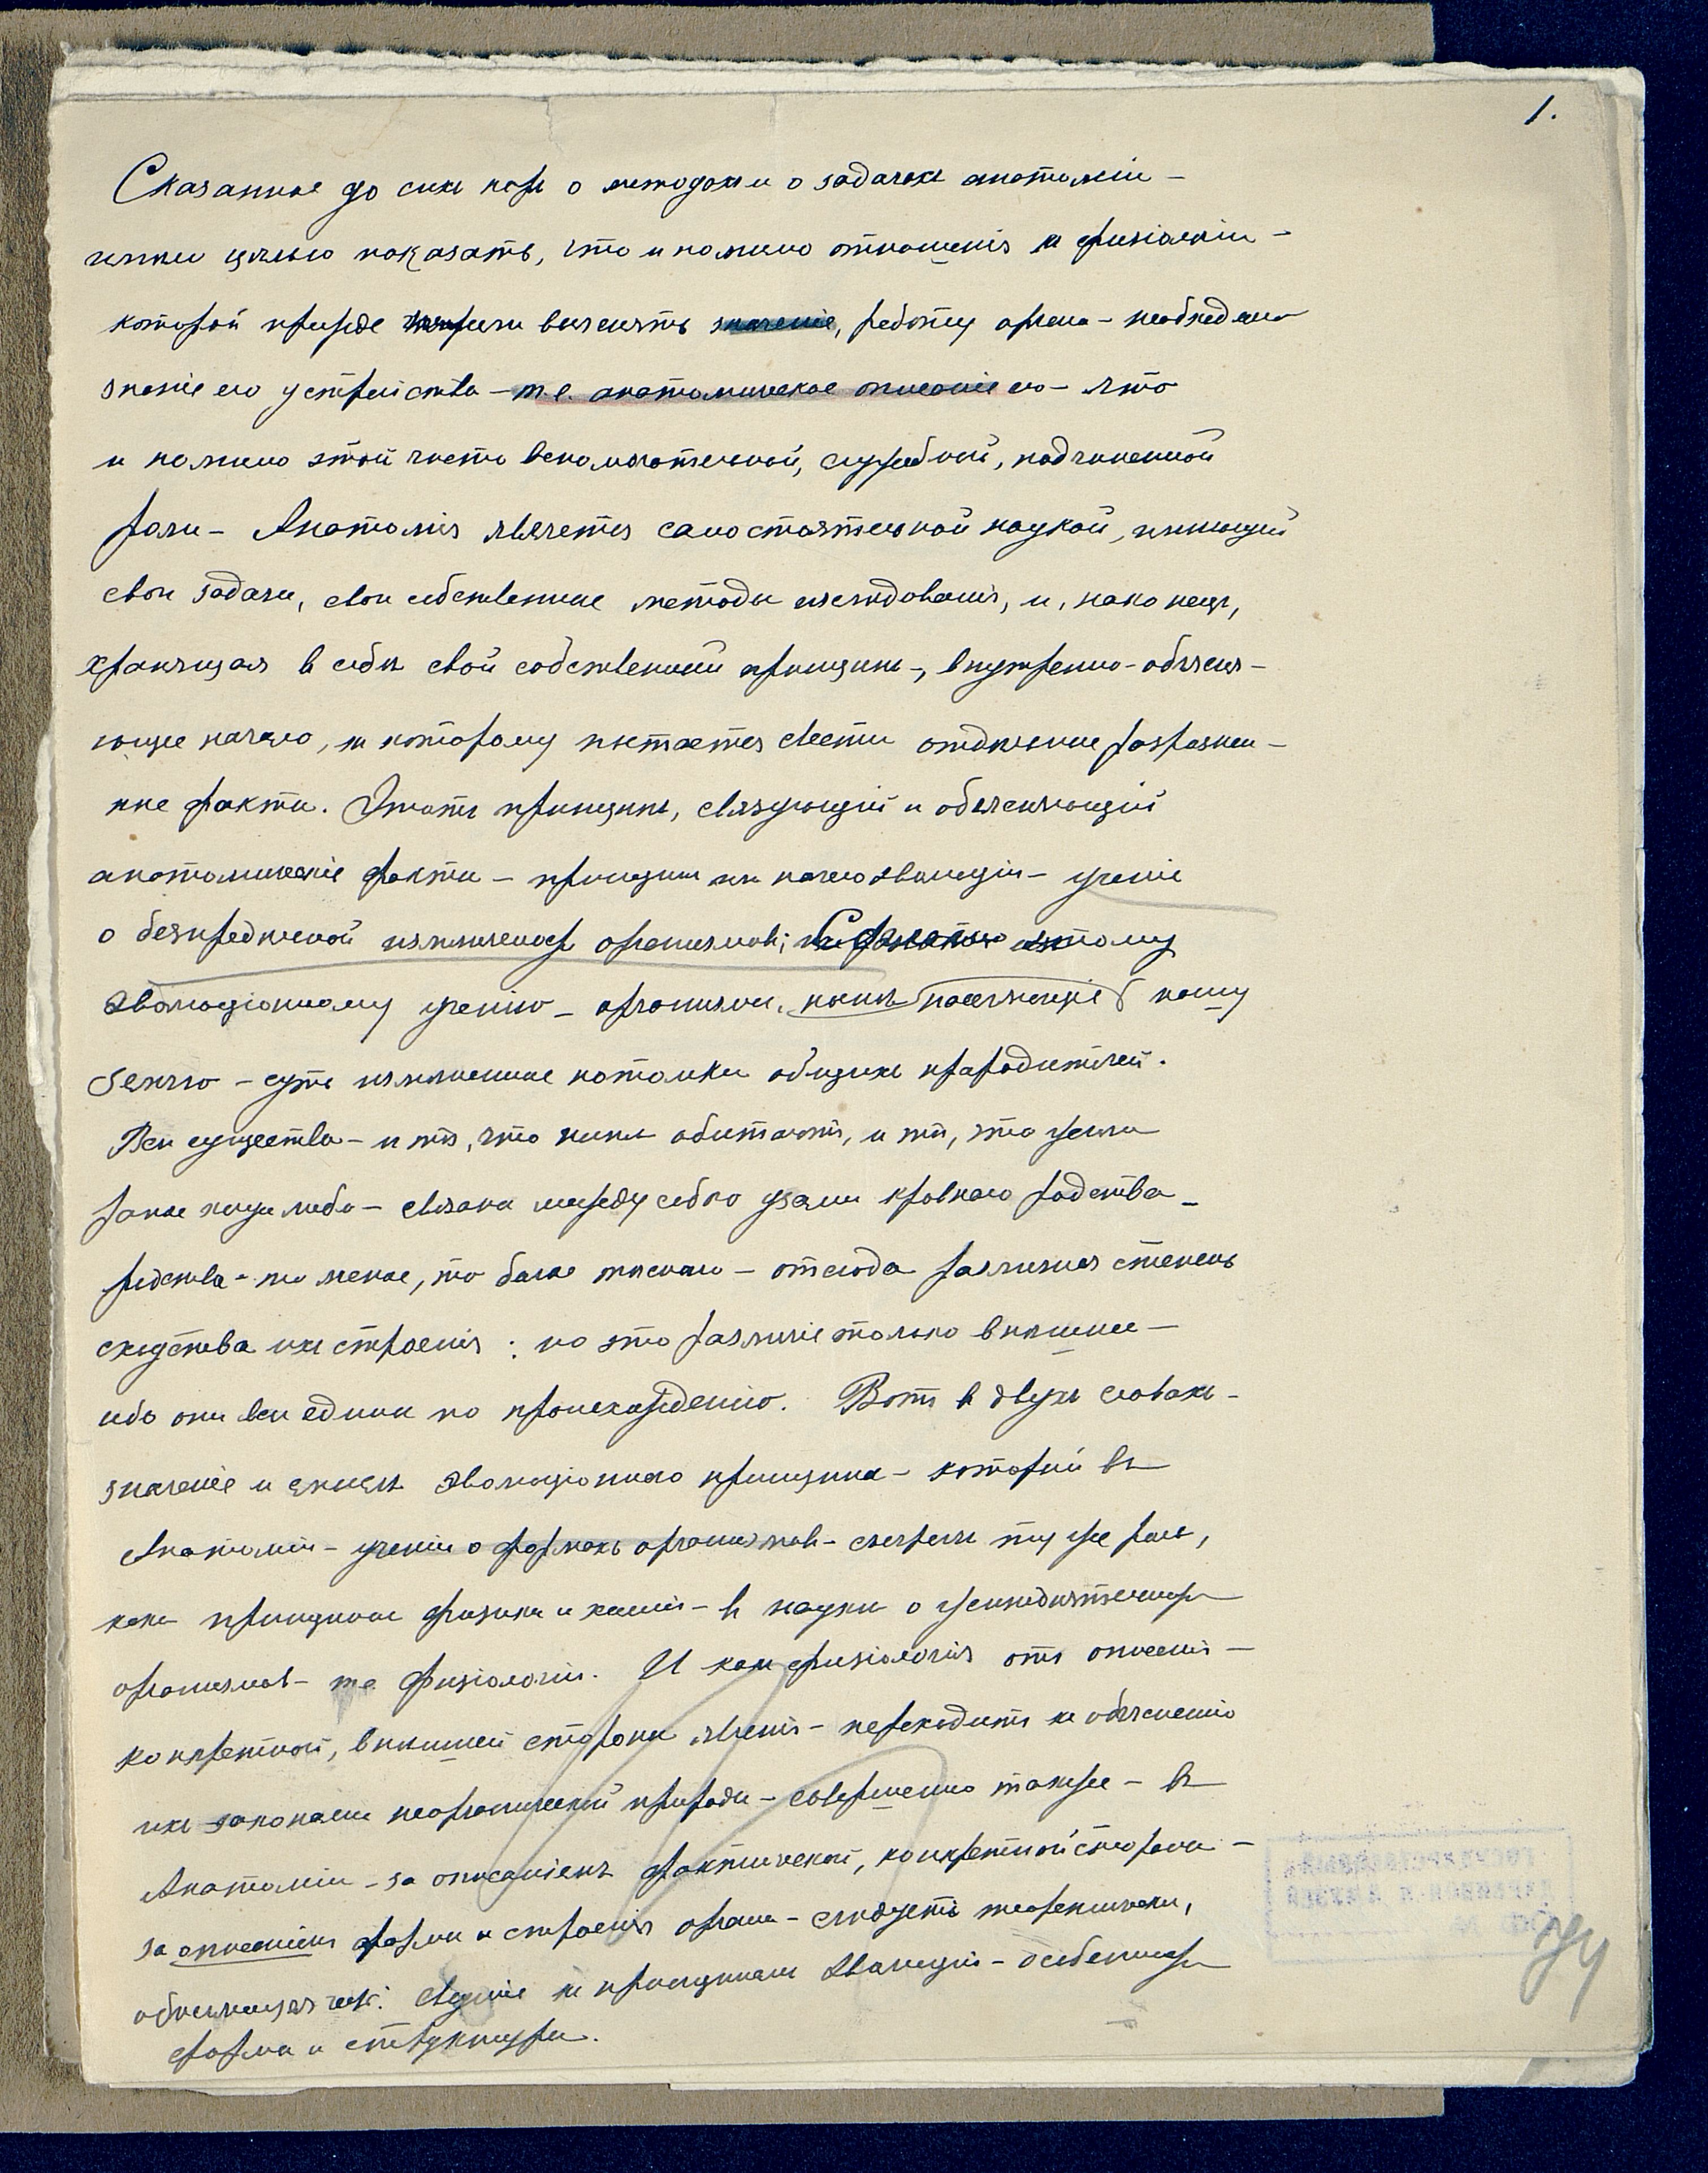 1.
Сказанное до сихъ поръ о методахъ и о задачахъ анатоміи –
имѣло цѣлью показать, что и помимо отношенія къ физіологіи –
которой прежде чѣмъ выяснять значеніе, работу органа – необходимо
знаніе его устройства – т.е. анатомическое описаніе его – что
и помимо этой чисто вспомогательной, служебной, подчиненной
роли – Анатомія является самостоятельной наукой, имѣющей
свои задачи, свои собственные методы изслѣдованія, и, наконецъ,
хранящая в себѣ свой собственный принципъ –, внутренно-объясня-
ющее начало, къ которому пытается свести отдѣльные разрознен-
ные факты. Этотъ принципъ, связующій и объясняющій
анатомическіе факты – принципъ или начало эволюціи – ученіе
о безпредѣльной измѣнчивости организмовъ; Согласно этому
эволюціонному ученію – организмы, нынѣ населяющіе нашу
землю – суть измѣненные потомки общихъ прародителей.
Всѣ существа – и тѣ, что нынѣ обитаютъ, и тѣ, что жили
ранѣе когда либо – связаны между собою узами кровнаго родства –
родства – то менѣе, то болѣе тѣснаго – отсюда различная степень
сходства ихъ строенія: но это различіе только внѣшнее –
ибо они всѣ едины по происхожденію. Вотъ в двухъ словахъ –
значеніе и смыслъ эволюціоннаго принципа – который въ
Анатоміи – ученіи о формахъ организмов – сыгралъ ту же роль,
какъ принципы физики и химіи – в науки о жизнедѣятельности
организмов – т.е. физіологіи. И какъ физіологія отъ описанія –
конкретной, внѣшней стороны явленія – переходитъ къ объясненію
ихъ законами неорганической природы – совершенно также – въ
Анатоміи – за описаніемъ фактической, конкретной стороны –
за описаніемъ формы и строенія органа – слѣдуетъ теоретическая,
объясняющая часть: сведеніе къ принципамъ эволюціи – особенностей
формы и структуры.